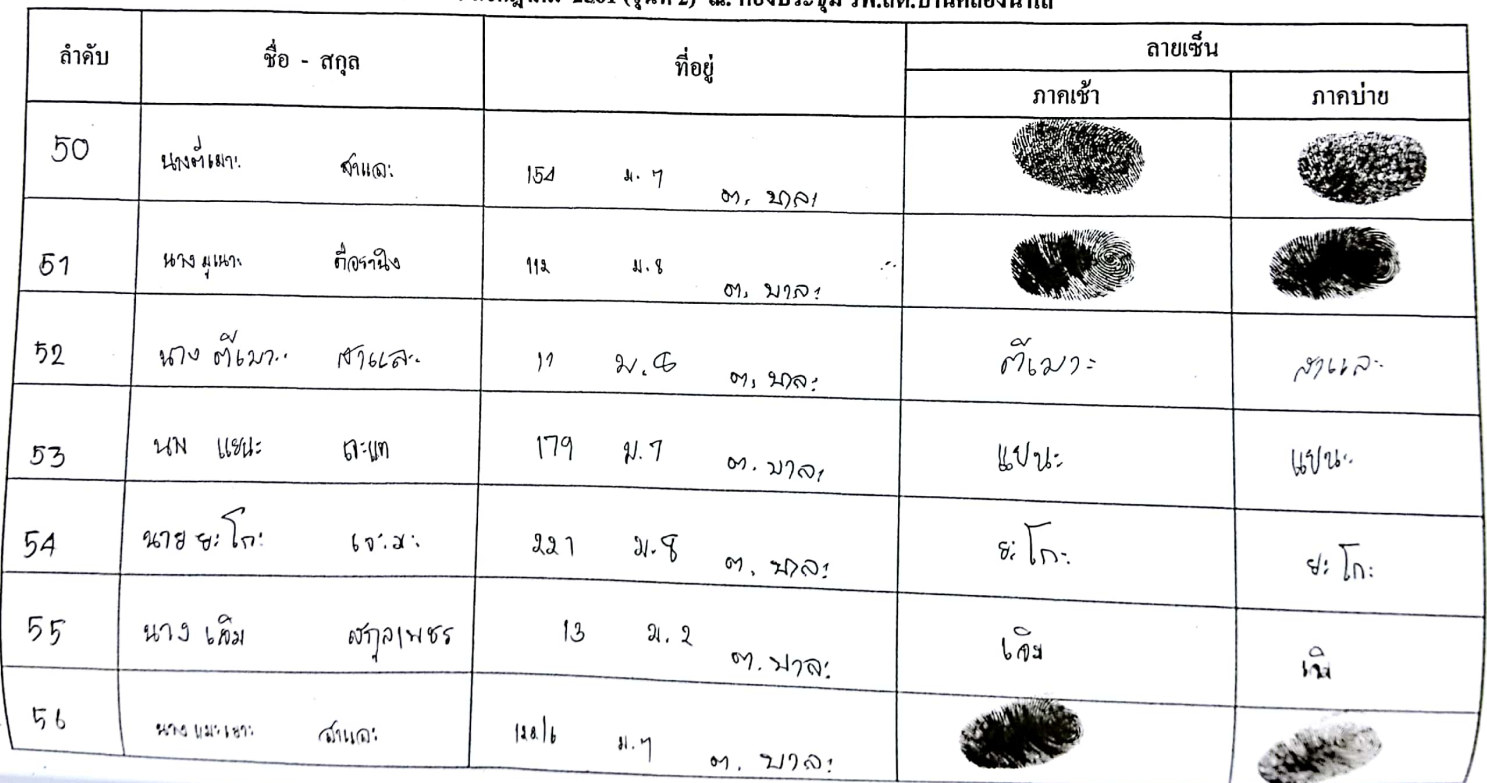 (รุ่นที่ 2) ณ. ห้องประชุม รพ.สต.บ้านคลองน้ำใส
ลำดับ ชื่อ - สกุล ที่อยู่ ลายเซ็น
ภาคเช้า ภาคบ่าย
50 นางตีเมาะ สาและ 154 ม. 7 ต. บาละ
51 นาง มูเนาะ ดือรานิง 112 ม. 8 ต. บาละ
52 นาง ตีเมาะ สาและ 11 ม. 6 ต. บาละ ตีเมาะ สาและ
53 แยนะ 179 ม. 7 ต. บาละ แยนะ แยนะ
54 นาย ยะโกะ เจะมะ 221 ม. 8 ต. บาละ ยะโกะ ยะโกะ
55 นาง เจิม สกุลเพชร 13 ม. 2 ต. บาละ เจิม เจิม
56 นาง แมะเยาะ สาและ 122/6 ม. 7 ต. บาละ